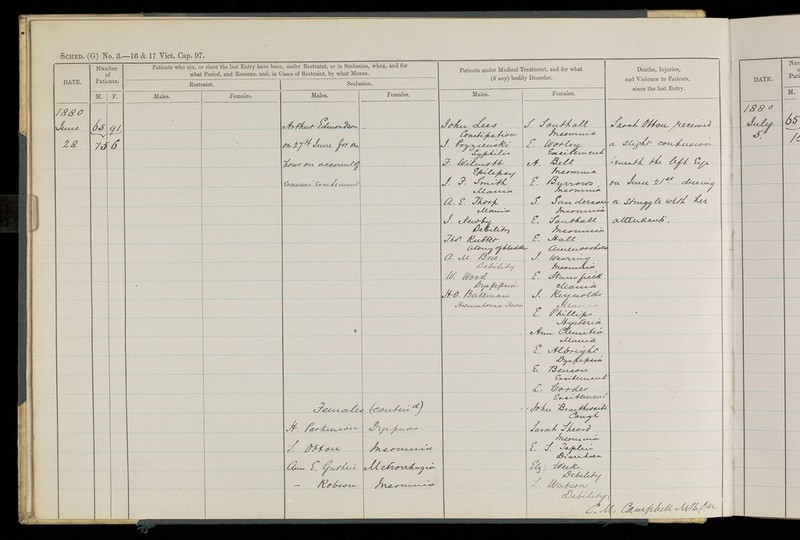 SCHED. (G) No. 3.—16 & 17 Vict. Cap. 97.
DATE.
Number
of
Patients.
M. F.
Patients who are, or since the last Entry have been, under Restraint, or in Seclusion, when, and for
what Period, and Reasons, and, in Cases of Restraint, by what Means.
Restraint.
Seclusion.
Males. Females. Males. Females.
Patients under Medical Treatment, and for what
(if any) bodily Disorder.
Males. Females.
Deaths, Injuries,
and Violence to Patients,
since the last Entry.
1880
June 65 91
28. 156
Arthur Edmondson
on 27th June for an
hour on account of
Excitement
John Lees
Constipation
J.
Syphilis
F. Wilmott
Epilepsy
J. F. Smith
Mania
A. E. Thorp
Mania
J. Newby
Debility
Thos Rutter
Atony of bladder
O. M. Box
Debility
W. Wood
Dyspepsia
H. O. Bateman
Haematoma Auris
J. Southall
Insomnia
E. Worley
Excitement
A. Bell
Insomnia
E. Burrows
Insomnia
S. Sanderson
Insomnia
E. Southall
Insomnia
E. Hall
Amenorrhoea
J. Wearing
Insomnia
E. Stansfield
Mania
J. Reynolds
Mania
E. Phillips
Hysteria
Ann
Mania
E. Albright
Dyspepsia
E. Benson
Excitement
L. Corder
Excitement
John Braithwaite
Cough
Sarah Sheard
Insomnia
E. J. Taplin
Diarrhoea
Eliz.
Debility
L. Watson
Debility
Sarah Otton, received
a slight contusion
beneath the left Eye
on June 21st during
a struggle with her
attendant.
Females (contin'd)
H. Parkinson Dyspepsia
J. Otton Insomnia
Ann E. Guthrie Metrorrhagia
— Robson Insomnia
C. M. Campbell MB. C.M.
DATE.
M.
1880
July 65
5.